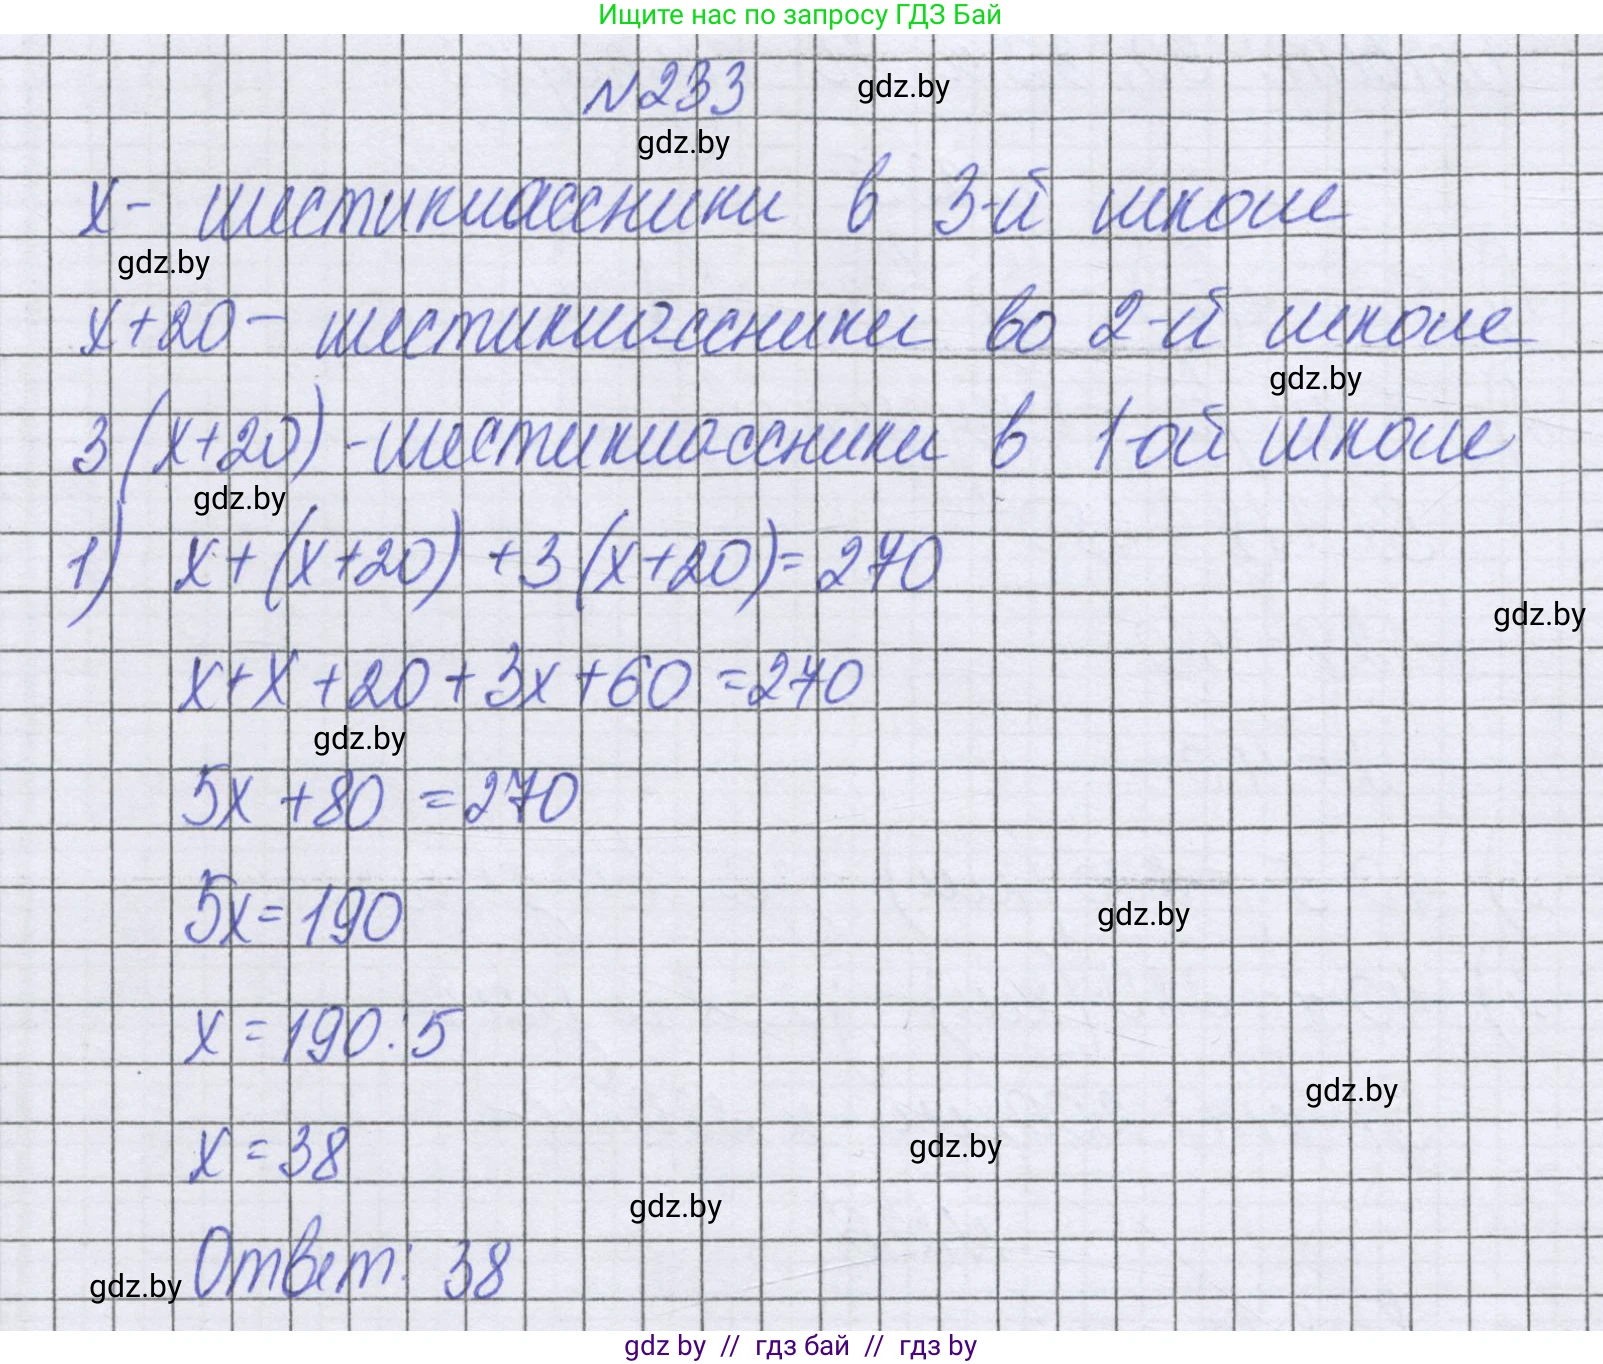 Ищите нас по запросу ГДЗ Бай
№233
gdz.by
gdz.by
x- шестиклассники в 3-й школе
gdz.by
x+20- шестиклассники во 2-й школе
gdz.by
3(x+20)-шестиклассники в 1-ой школе
gdz.by
1) x+(x+20)+3(x+20)=270
gdz.by
x+x+20+3x+60=270
gdz.by
5x+80=270
5x=190
gdz.by
x=190:5
gdz.by
x=38
gdz.by
gdz.by
Ответ: 38
gdz.by
gdz by // гдз бай // гдз by